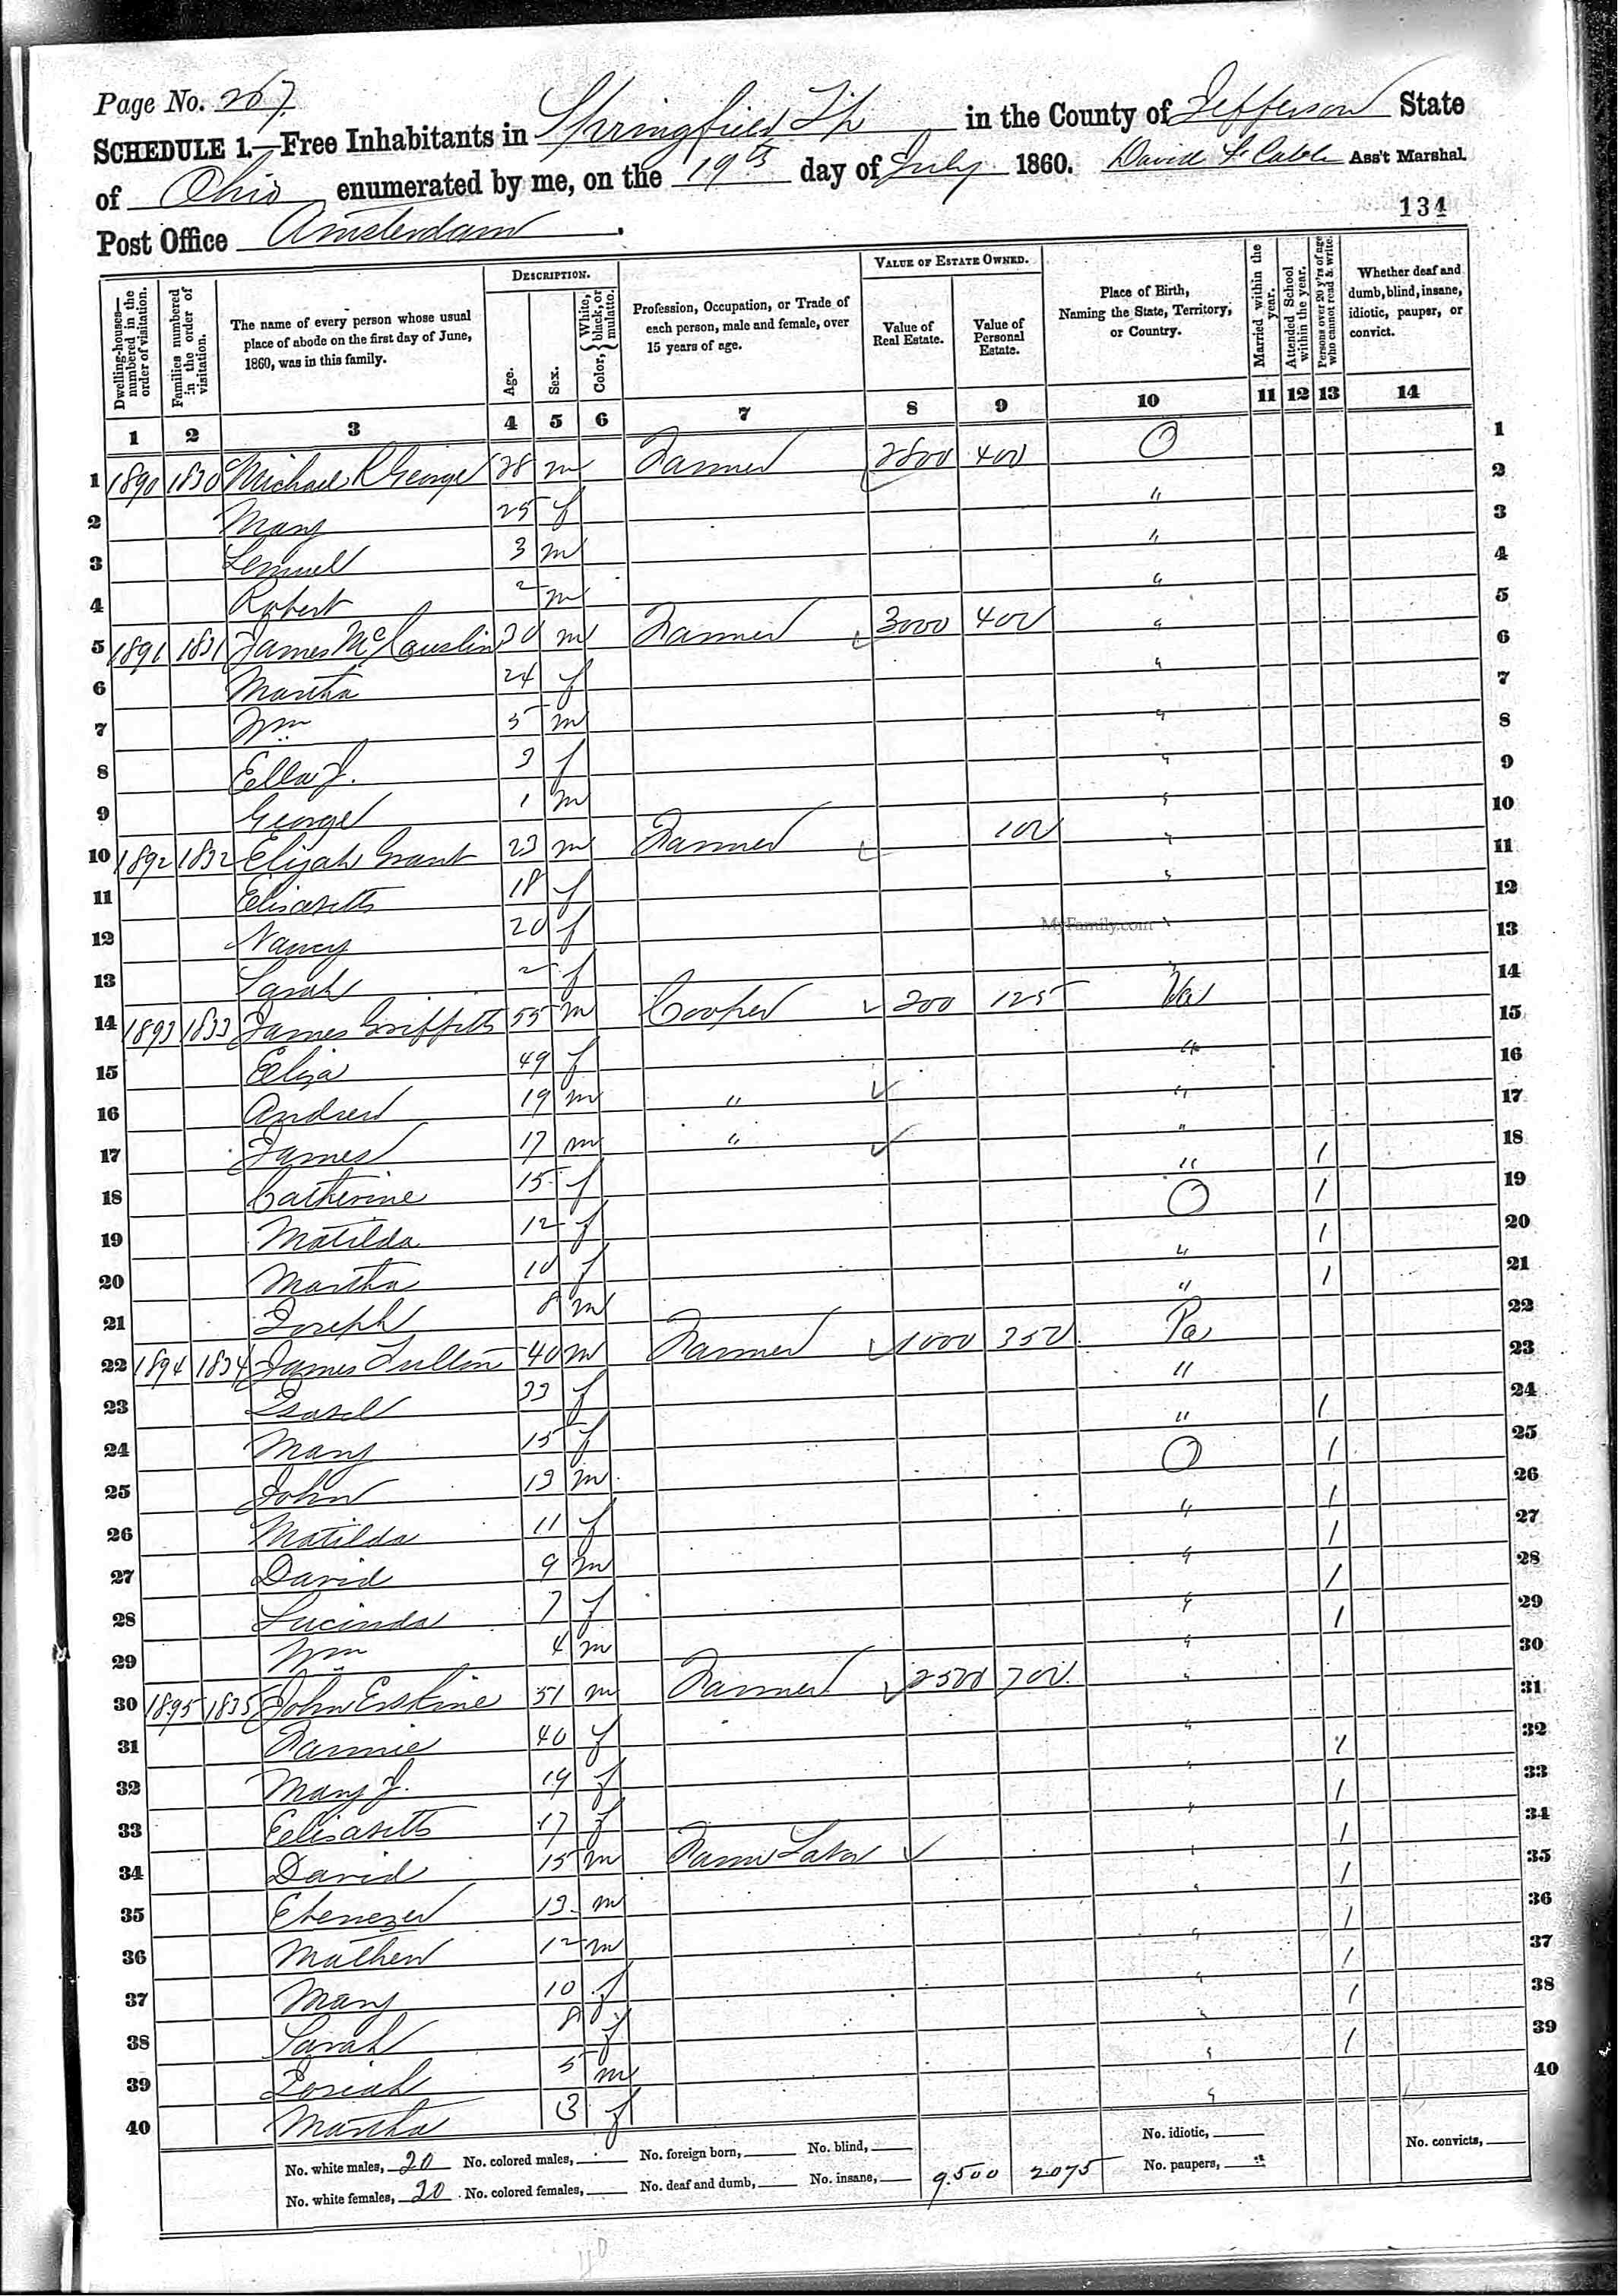 Page No. 267.
SCHEDULE 1.—Free Inhabitants in Springfield Tp in the County of Jefferson State
of Ohio enumerated by me, on the 19th day of July 1860. David Ass't Marshal.
Post Office Amsterdam.
134
DESCRIPTION. VALUE OF ESTATE OWNED.
Dwelling-houses—numbered in the order of visitation.
Families numbered in the order of visitation.
The name of every person whose usual place of abode on the first day of June, 1860, was in this family.
Age.
Sex.
Color, { White, black, or mulatto.
Profession, Occupation, or Trade of each person, male and female, over 15 years of age.
Value of Real Estate.
Value of Personal Estate.
Place of Birth, Naming the State, Territory, or Country.
Married within the year.
Attended School within the year.
Persons over 20 y'rs of age who cannot read & write.
Whether deaf and dumb, blind, insane, idiotic, pauper, or convict.
1 2 3 4 5 6 7 8 9 10 11 12 13 14
1 1890 1830 Michael R George 28 m Farmer 2800 400 O 1
2 Mary 25 f " 2
3 Lemuel 3 m " 3
4 Robert 2 m " 4
5 1891 1831 James McCauslin 30 m Farmer 3000 400 " 5
6 Martha 24 f " 6
7 Wm 5 m " 7
8 Ella J. 3 f " 8
9 George 1 m " 9
10 1892 1832 Elijah Grant 23 m Farmer 100 " 10
11 Elisabeth 18 f " 11
12 Nancy 20 f " 12
13 Sarah 2 f " 13
14 1893 1833 James Griffith 55 m Cooper 200 125 Va 14
15 Eliza 49 f " 15
16 Andrew 19 m " " 16
17 James 17 m " " 17
18 Catherine 15 f " / 18
19 Matilda 12 f O / 19
20 Martha 10 f " / 20
21 Joseph 8 m " / 21
22 1894 1834 James 40 m Farmer 1000 350 Pa 22
23 Isabel 33 f " 23
24 Mary 15 f " / 24
25 John 13 m O / 25
26 Matilda 11 f " / 26
27 David 9 m " / 27
28 Lucinda 7 f " / 28
29 Wm 4 m " / 29
30 1895 1835 John Erskine 51 m Farmer 2500 700 " 30
31 Fannie 40 f " 31
32 Mary J. 19 f " / 32
33 Elisabeth 17 f " / 33
34 David 15 m Farm Labor " / 34
35 Ebenezer 13 m " / 35
36 Mathew 12 m " / 36
37 Mary 10 f " / 37
38 Sarah 8 f " / 38
39 Josiah 5 m " / 39
40 Martha 3 f " 40
MyFamily.com
No. white males, 20 No. colored males, No. foreign born, No. blind, No. idiotic, No. convicts,
No. white females, 20 No. colored females, No. deaf and dumb, No. insane, 9.500 2.075 No. paupers,
40